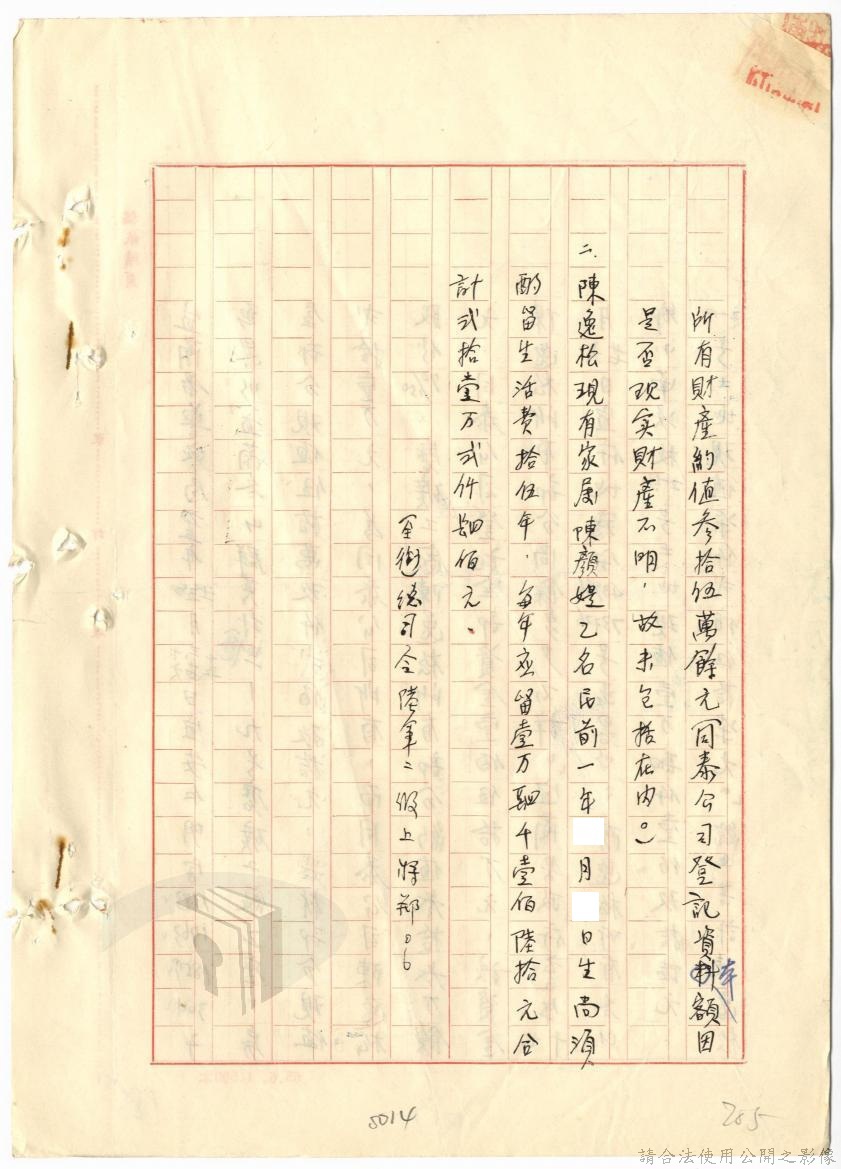 所有財產約值參拾伍萬餘元同泰公司登記資料額因
本
是否現实財產不明，故未包括在內。）
二、陳逸松現有家屬陳顏媞乙名民前一年 月 日生尚須
酌留生活費拾伍年．每年应留壹万肆千壹佰陸拾元合
計弍拾壹万弍仟肆佰元、
軍總司令陸軍二級上將鄭。
5014
265
請合法使用公開之影像